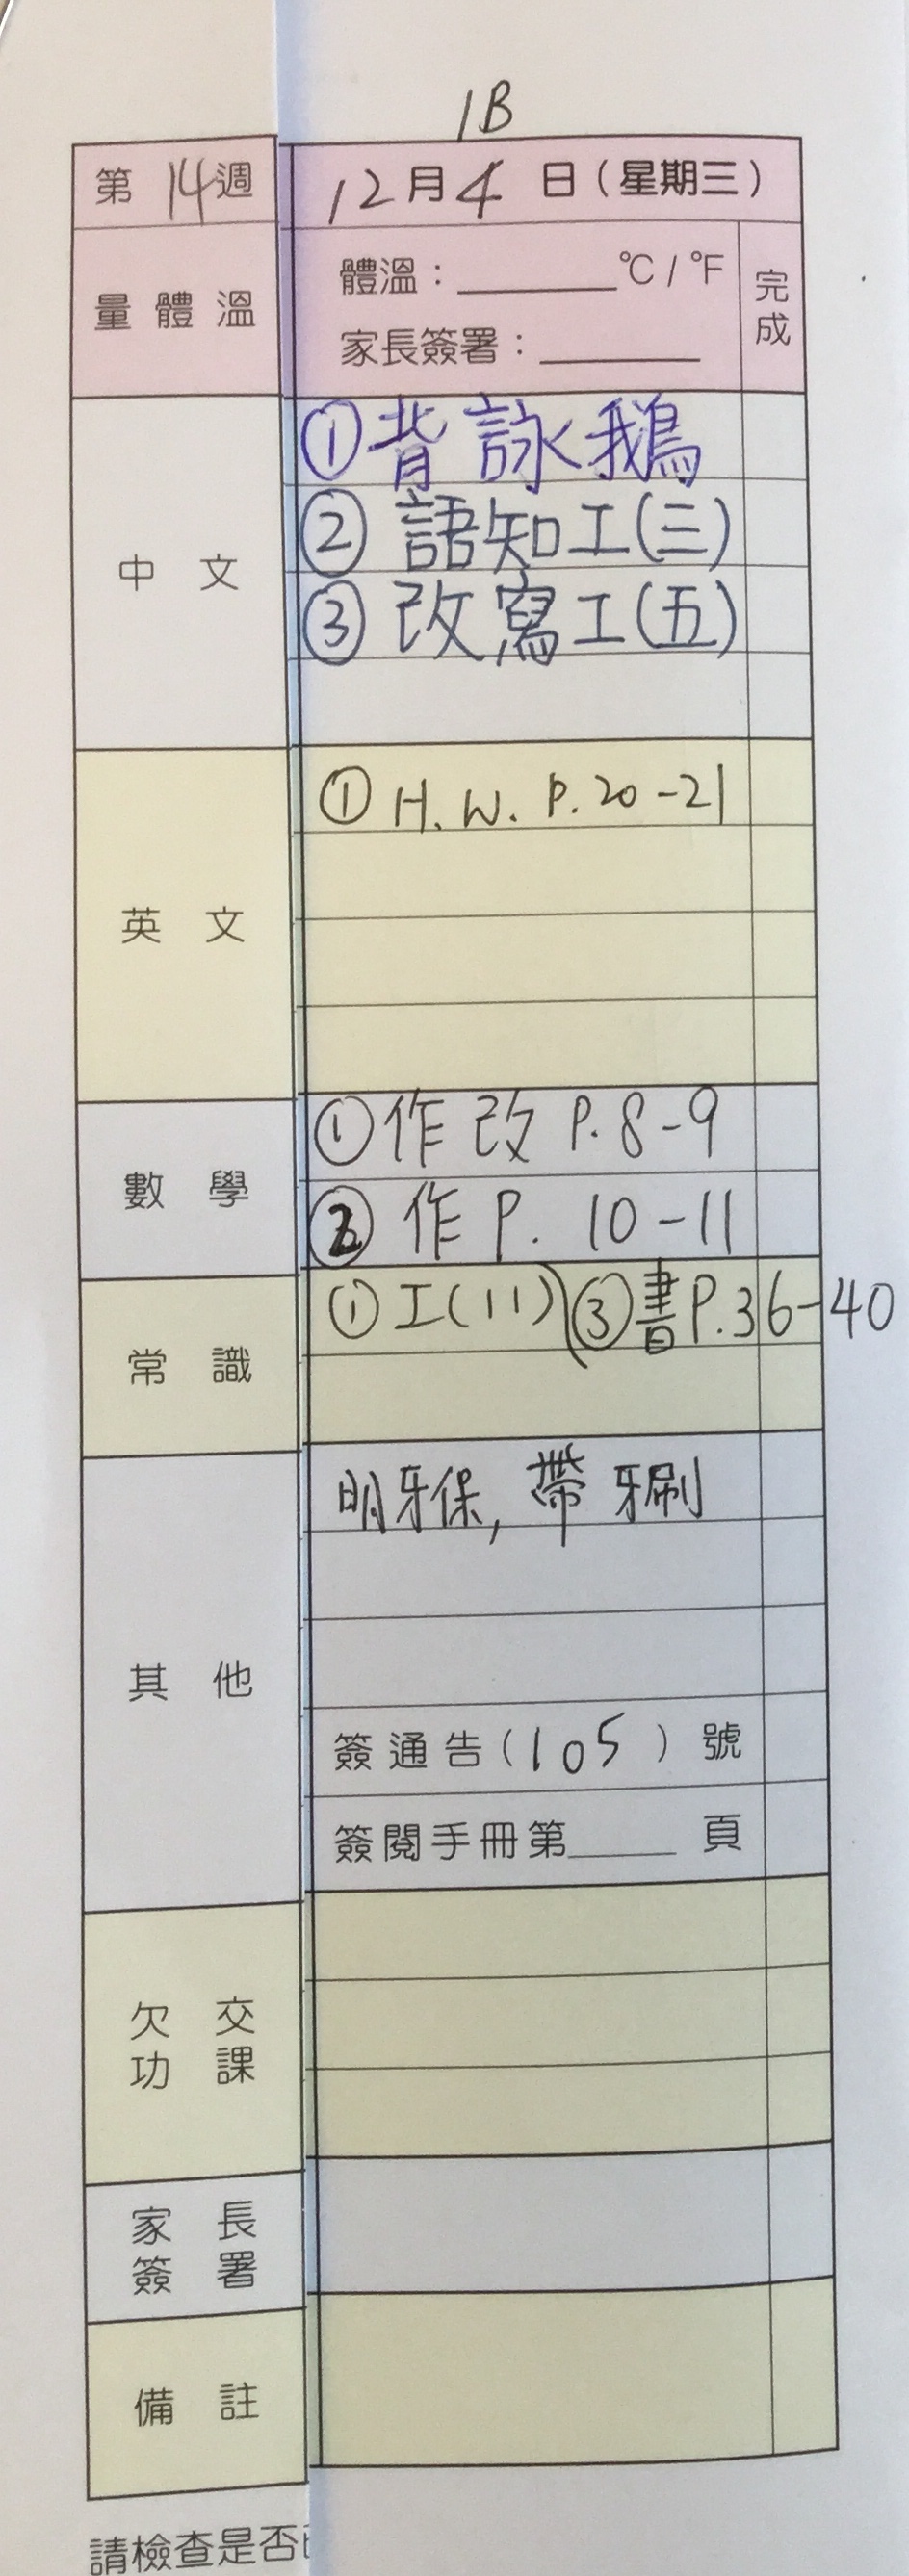 1B
第 14 週 12 月 4 日 (星期三)
量體溫
體溫：______ °C / °F
家長簽署：______
完成
中文
① 背詠鵝
② 語知工(三)
③ 改寫工(五)
英文
① H.W. P.20-21
數學
① 作改 P.8-9
② 作 P. 10-11
常識
① 工(11) ③ 書 P.36-40
其他
明牙保, 帶牙刷
簽通告(105)號
簽閱手冊第____頁
欠交功課
家長簽署
備註
請檢查是否